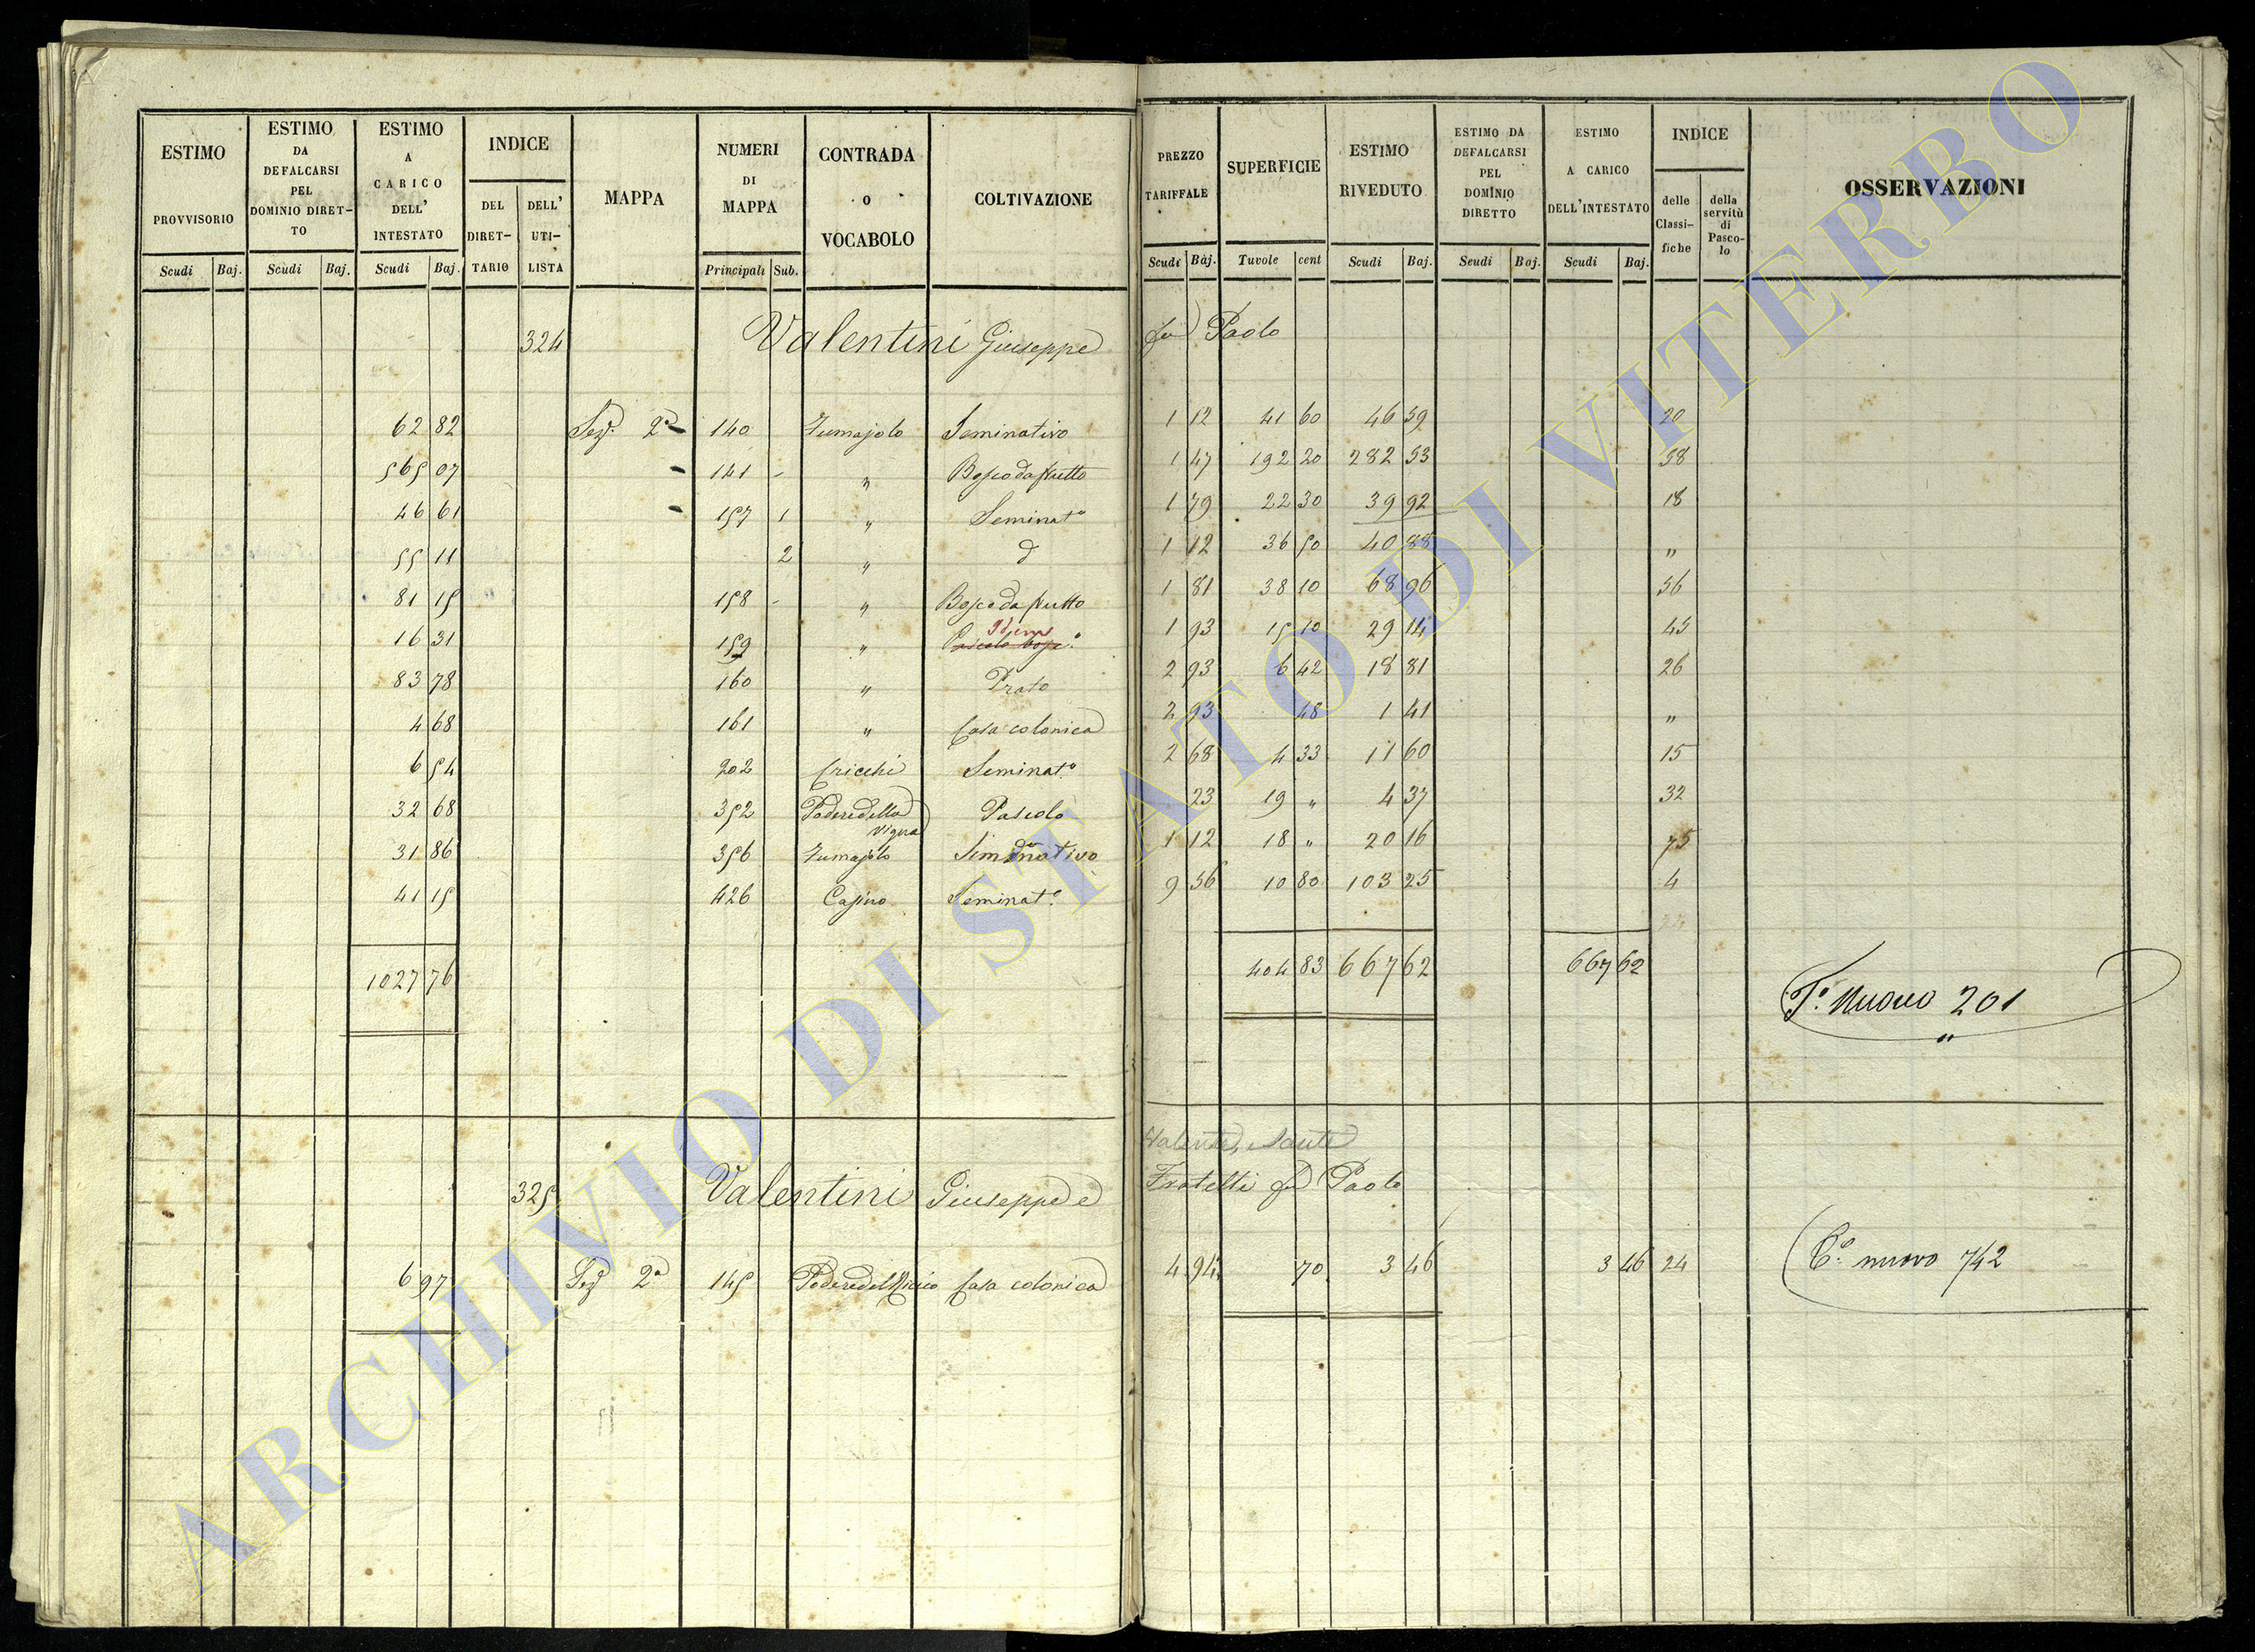 ESTIMO PROVVISORIO Scudi Baj. | ESTIMO DA DEFALCARSI PEL DOMINIO DIRET-TO Scudi Baj. | ESTIMO A CARICO DELL' INTESTATO Scudi Baj. | INDICE DEL DIRET-TARIO DELL' UTI-LISTA | MAPPA | NUMERI DI MAPPA Principali Sub. | CONTRADA O VOCABOLO | COLTIVAZIONE | PREZZO TARIFFALE Scudi Baj. | SUPERFICIE Tavole cent | ESTIMO RIVEDUTO Scudi Baj. | ESTIMO DA DEFALCARSI PEL DOMINIO DIRETTO Scudi Baj. | ESTIMO A CARICO DELL'INTESTATO Scudi Baj. | INDICE delle Classi-fiche della servitù di Pasco-lo | OSSERVAZIONI
324 Valentini Giuseppe fu Paolo
62 82 Sez. 2a 140 Fumajolo Seminativo 1 12 41 60 46 59 20
565 07 141 - " Bosco da frutto 1 47 192 20 282 53 58
46 61 157 1 " Seminato 1 79 22 30 39 92 18
55 11 2 " d 1 12 36 50 40 88 "
81 15 158 - " Bosco da frutto 1 81 38 10 68 96 56
16 31 159 " Pascolo bosc.o Idem 1 93 15 10 29 14 45
83 78 160 " Prato 2 93 6 42 18 81 26
4 68 161 " Casa colonica 2 93 48 1 41 "
6 54 202 Cricchi Seminat.o 2 68 4 33 11 60 15
32 68 352 Podere della Vigna Pascolo 23 19 " 4 37 32
31 86 356 Fumajolo Seminativo 1 12 18 " 20 16 75
41 15 426 Casino Seminat.o 9 56 10 80 103 25 4
1027 76 404 83 667 62 667 62
T.o Nuovo 201
"
Valentini, Sante
325 Valentini Giuseppe e Fratelli fu Paolo
6 97 Sez 2a 145 Podere del Ricino Casa colonica 4 94 70 3 46 3 46 24 C.o nuovo 742
ARCHIVIO DI STATO DI VITERBO